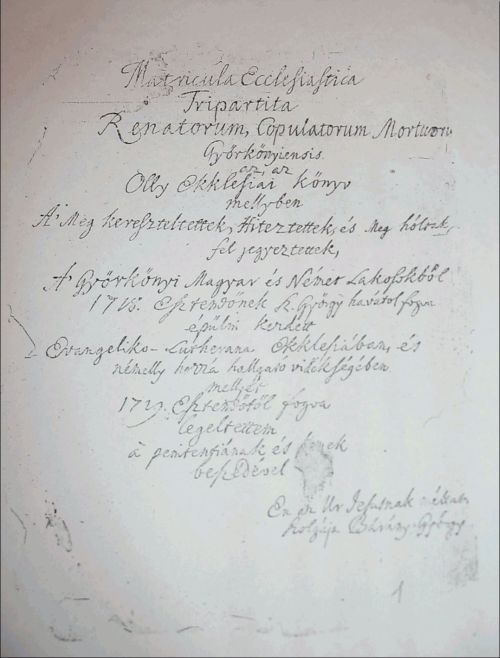 Matricula Ecclesiastica
Tripartita
Renatorum, Copulatorum Mortuorum
Györkönyiensis.
az, az
Olly Ekklesiai könyv
mellyben
A' Meg kereszteltettek, Hiteztettek, és Meg hóltak,
fel jegyeztettek,
A' Györkönyi Magyar és Német Lakosokból
Esztendönek Sz. György havától fogva
épülni kezdett
Evangeliko-Lutherana Ekklesiában, és
némelly hozzá hallgató vidékségében
mellyet
Esztendötöl fogva
legeltettem
a' penitentziának és
beszédével
Én az Ur Jesusnak
szolgája Bárány György
1